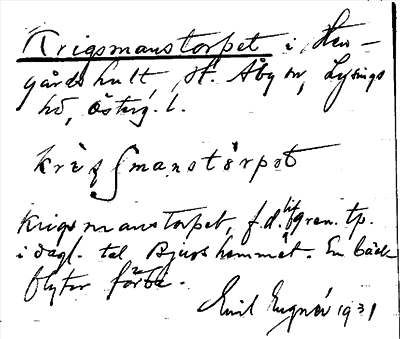 Krigsmanstorpet i Hu-
gårdshult, St. Åby sn, Lysings
hd, Österg. l.
krìgsmanstórpet
Krigsmanstorpet, f.d. lifgren. tp.
i dagl. tal Bjurshemmet. En bäck
flyter förbi.
Emil 1931